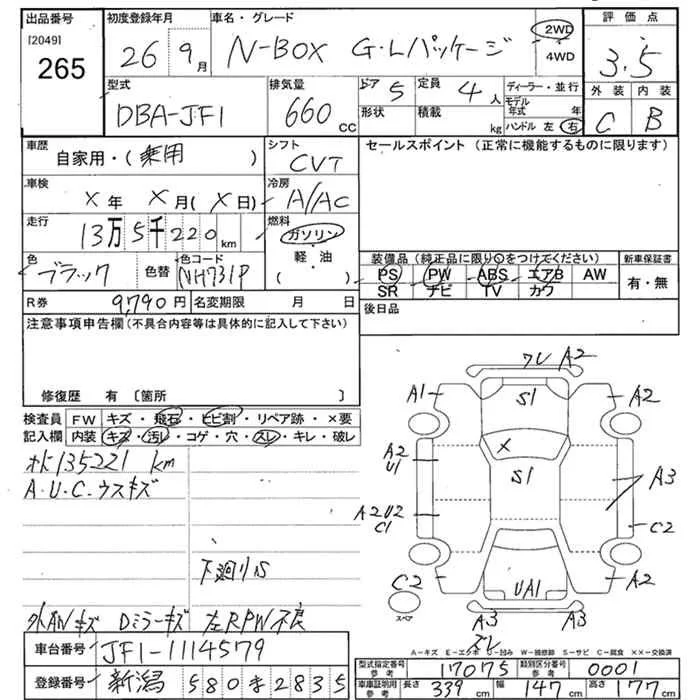 出品番号 初度登録年月 車名・グレード 評価点
[2049] 265 26 9月 N-BOX G・Lパッケージ 2WD 4WD 3.5
外装 内装
C B
型式 排気量 ドア 5 定員 4人 ディーラー・並行
DBA-JF1 660cc 形状 積載 kg モデル年式 年
ハンドル 左 右
車歴 シフト セールスポイント (正常に機能するものに限ります)
自家用・(乗用) CVT
車検 冷房
X年 X月(X日) A/AC
走行 燃料
13万5千220km ガソリン 軽・油 ( )
色 色コード 装備品(純正品に限り○をつけてください) 新車保証書
ブラック 色替 NH731P PS PW ABS エアB AW 有・無
SR ナビ TV カワ
R券 9790円 名変期限 月 日 後日品
注意事項申告欄(不具合内容等は具体的に記入して下さい)
修復歴 有 〔箇所 〕
検査員 FW キズ・飛石・ヒビ割・リペア跡・×要
記入欄 内装 キズ・汚レ・コゲ・穴・スレ・キレ・破レ
135221 km
A.U.C.ウスキズ
下廻りS
外ANキズ Dミラーキズ 左RPW不良
ワレ A2
A1 S1 A2
X
A2
U1 S1 A3
A2U2
C1 C2
C2 UA1 A2
スペア A3 A3
A-キズ E-エクボ U-凹み W-補修跡 S-サビ C-腐食 ××-交換済
車台番号 JF1-1114579
型式指定番号 参考 17075 類別区分番号 参考 0001
登録番号 新潟 580ま2835
車庫証明用 参考 長さ 339cm 幅 147cm 高さ 177cm